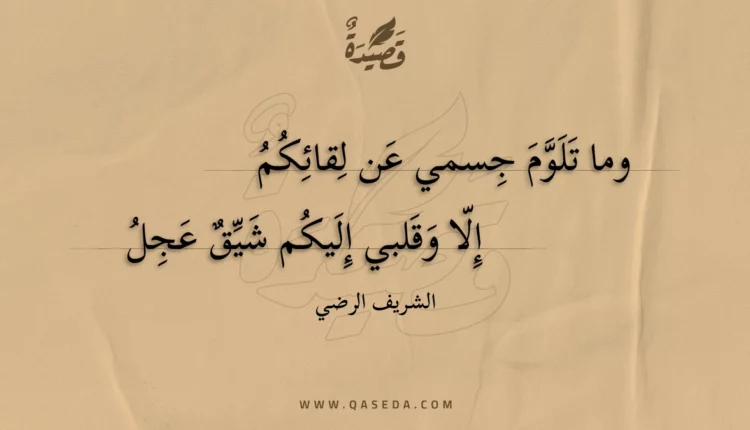 قَصِيدَةٌ
وما تَلَوَّمَ جِسمي عَن لِقائِكُمُ
إِلّا وَقَلبي إِلَيكُم شَيِّقٌ عَجِلُ
الشريف الرضي
WWW.QASEDA.COM